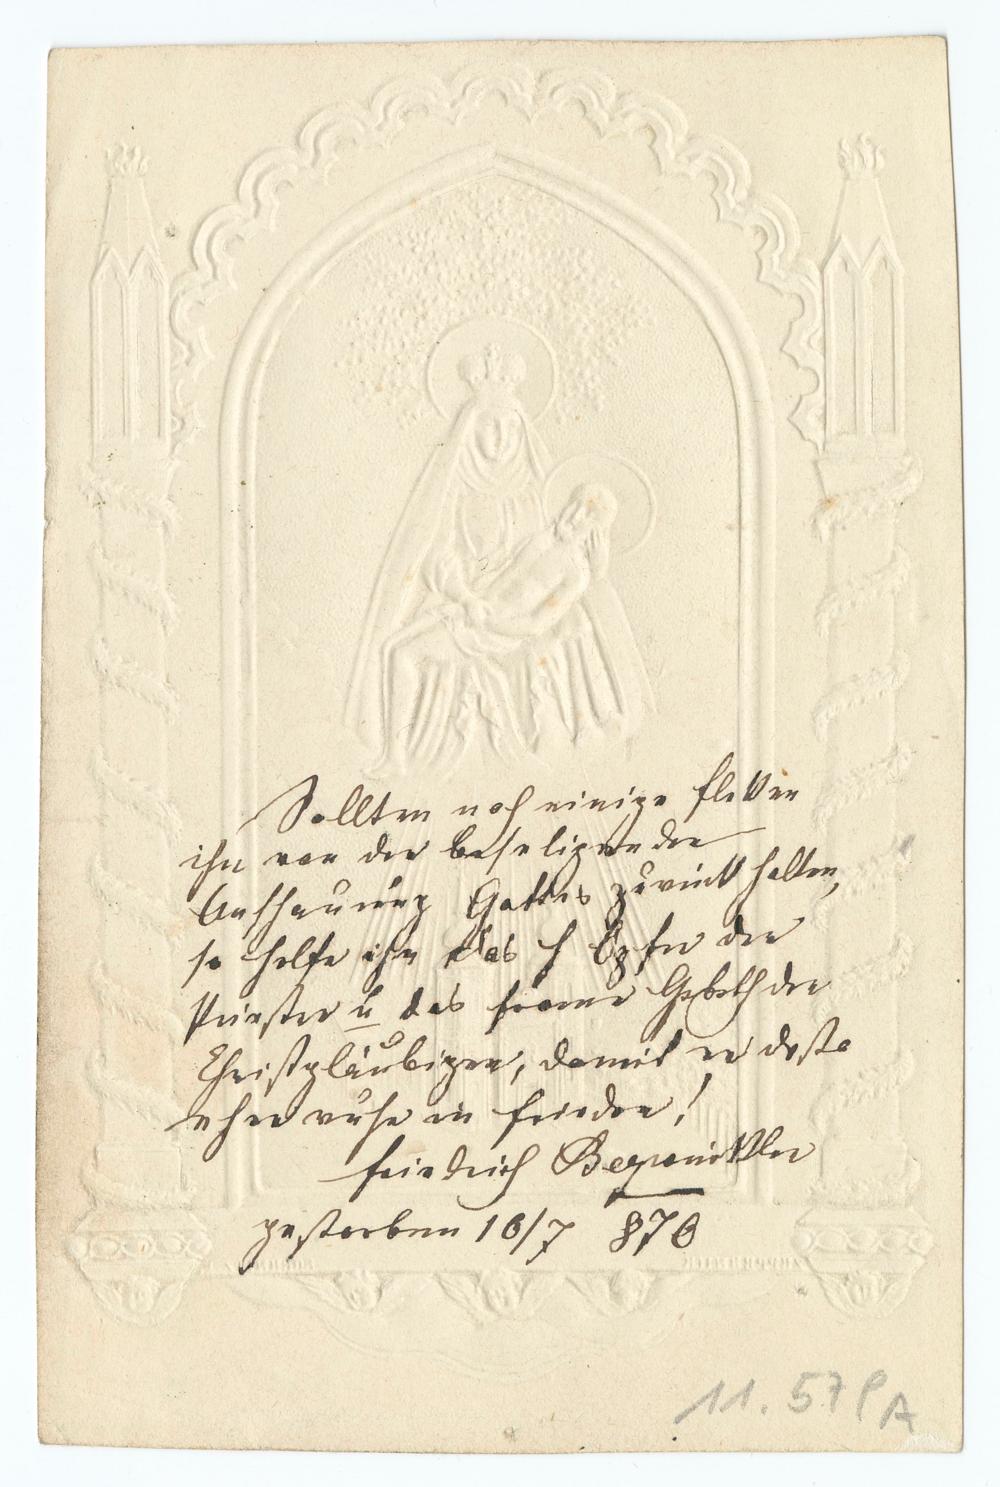 Sollten noch einige flekken
ihn von der beseligenden
Anschauung Gottes zurückhalten,
so helfe ihn das h Opfer der
Priester u das frome Gebeth der
Christgläubigen, damit er desto
eher ruhe in frieden!
friedrich
gestorben 10/7 870
11.579A